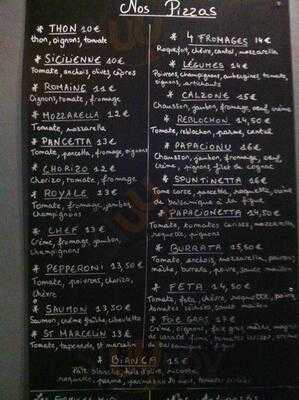 Nos Pizzas
* THON 10€
thon, oignons, tomate
* SICILIENNE 10€
Tomate, anchois, olives, câpres
* ROMAINE 11€
Oignons, tomate, fromage
* MOZZARELLA 12€
Tomate, mozzarella
* PANCETTA 13€
Tomate, pancetta, fromage, oignons
* CHORIZO 12€
Chorizo, tomate, fromage
* ROYALE 13€
Tomate, fromage, jambon,
champignons
* CHEF 13€
Crème, fromage, jambon,
champignons
* PEPPERONI 13,50€
Tomate, poivrons, chorizo,
chèvre
* SAUMON 13,50€
Saumon, crème fraîche, ciboulette
* ST MARCELIN 13€
Tomate, tapenade, st marcelin
* 4 FROMAGES 14€
Roquefort, chèvre, cantal, mozzarella
* LÉGUMES 14€
Poivrons, champignons, aubergines, tomates,
oignons, artichauts
* CALZONE 15€
Chausson, jambon, fromage, oeuf, crème
* REBLOCHON 14,50€
Tomate, reblochon, parme, cantal
* PAPACIONU 16€
Chausson, jambon, fromage, oeuf,
crème, pignons, filet de cognac
* SPUNTINETTA 16€
Tome corse, pancetta, roquette, crème
de balsamique à la figue
* PAPACIONETTA 14,50€
Tomate, tomates cerises, mozzarella,
roquette, pignons
* BURRATA 15,50€
Tomate, anchois, mozzarella, poivrons
* FETA 14,50€
Tomate, feta, chèvre, roquette, poivrons
tomates cerises, sauce
* FOIE GRAS 17€
Crème, oignons, foie gras
tomates cerises,
balsamique figue
* BIANCA 15€
Pâte blanche, huile d'olive, ricotta,
roquette, parme, parmesan, tomates cerises